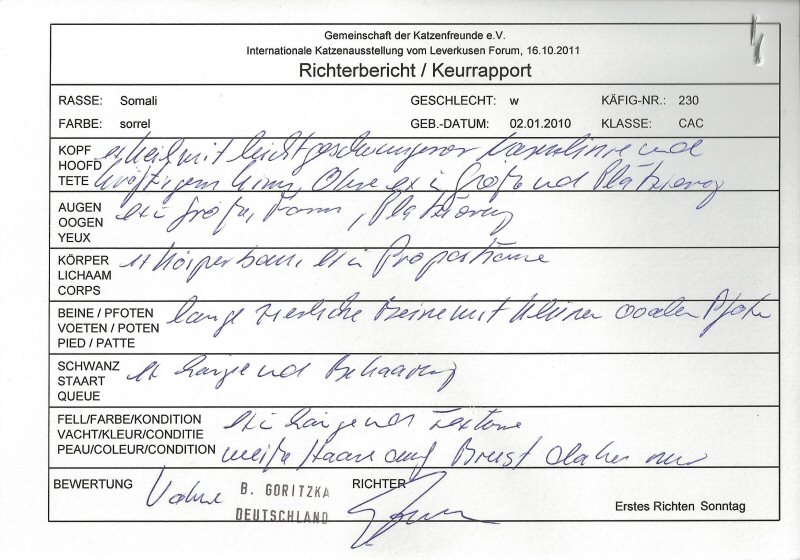 Gemeinschaft der Katzenfreunde e.V.
Internationale Katzenausstellung vom Leverkusen Forum, 16.10.2011
Richterbericht / Keurrapport
RASSE: Somali GESCHLECHT: w KÄFIG-NR.: 230
FARBE: sorrel GEB.-DATUM: 02.01.2010 KLASSE: CAC
KOPF mit leicht geschwungener Nasenlinie und
HOOFD
TETE kräftigem Kinn, Ohren ex in Größe und Platzierung
AUGEN ex in Größe, Form, Platzierung
OOGEN
YEUX
KÖRPER Körperbau, ex in Proportione
LICHAAM
CORPS
BEINE / PFOTEN lange zierliche Beine mit kleinen ovalen Pfoten
VOETEN / POTEN
PIED / PATTE
SCHWANZ ex Länge und Behaarung
STAART
QUEUE
FELL/FARBE/KONDITION ex in Länge und Textur
VACHT/KLEUR/CONDITIE
PEAU/COLEUR/CONDITION weiße Haare auf Brust daher nur
BEWERTUNG B. GORITZKA RICHTER
DEUTSCHLAND
Erstes Richten Sonntag